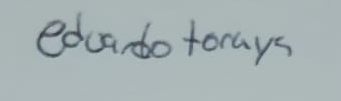 eduardo torays